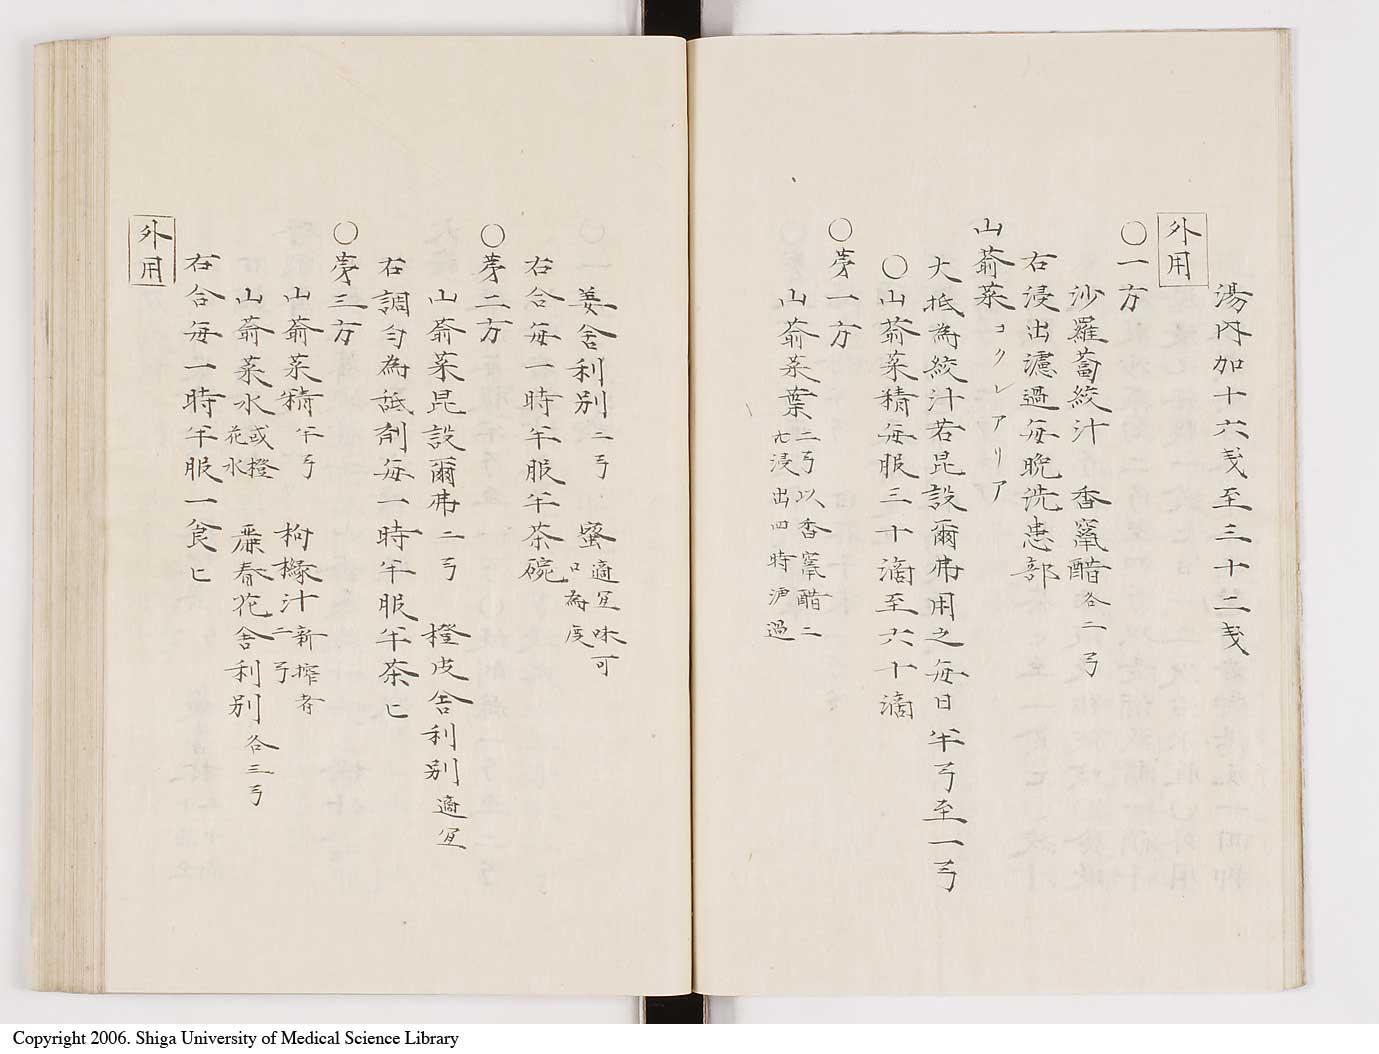 湯内加十六戔至三十二戔
外用
〇一方
沙羅蔔絞汁 香竄醋各二弓
右浸出濾過每晩洗患部
山葥菜コクレアリア
大抵為絞汁若昆設爾弗用之每日半弓至一弓
〇山葥菜精每服三十滴至六十滴
〇㐧一方
山葥菜葉二弓以香竄醋二
九浸出四時沪過
姜舍利別二弓 蜜適宜味可
口為度
右合每一時半服半茶碗
〇㐧二方
山葥菜昆設爾弗二弓 橙皮舍利別適宜
右調匀為舐剤每一時半服半茶匕
〇㐧三方
山葥菜精半弓 枸櫞汁新搾者
二弓
山葥菜水或橙
花水 麻春花舍利別各三弓
右合每一時半服一食匕
外用
Copyright 2006. Shiga University of Medical Science Library